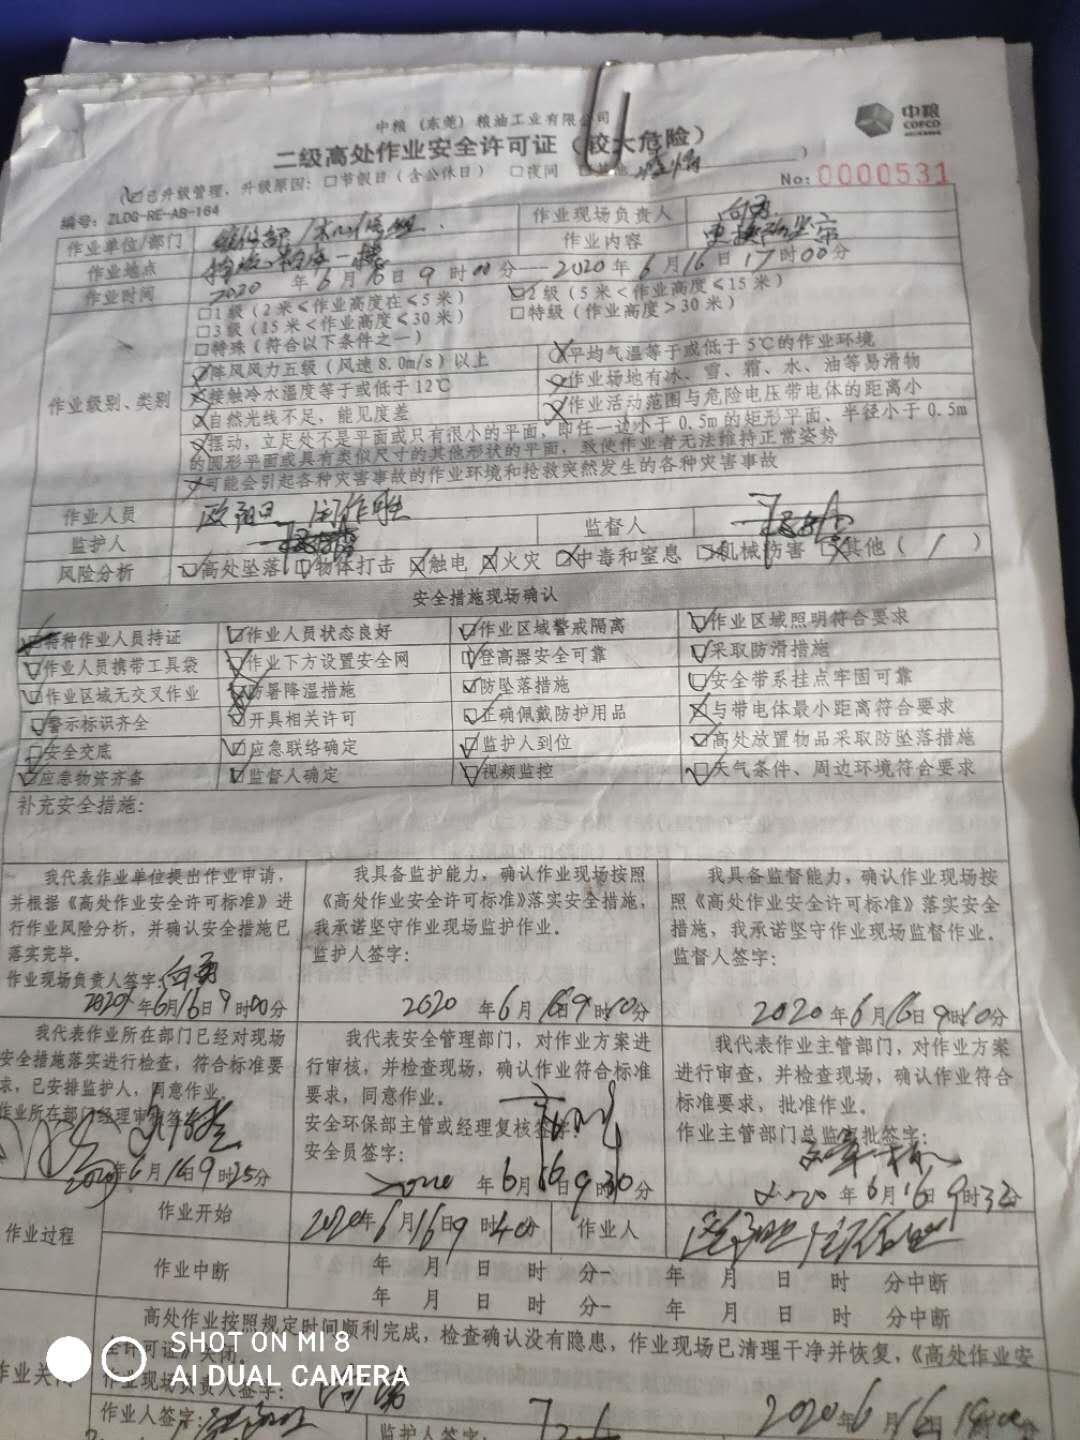 中粮
COFCO
中粮（东莞）粮油工业有限公司
二级高处作业安全许可证（较大危险）
已升级管理，升级原因：□节假日（含公休日） □夜间 □其他 ）
No: 0000531
编号：ZLDG-RE-AB-164
作业单位/部门 作业现场负责人 向勇
作业地点 作业内容
作业时间 2020 年 6 月 16 日 9 时 00 分—2020 年 6 月 16 日 17 时 00 分
作业级别、类别
□1级（2米<作业高度在≤5米） □2级（5米<作业高度≤15米）
□3级（15米<作业高度≤30米） □特级（作业高度>30米）
□特殊（符合以下条件之一）
阵风风力五级（风速8.0m/s）以上 平均气温等于或低于5℃的作业环境
接触冷水温度等于或低于12℃ 作业场地有冰、雪、霜、水、油等易滑物
自然光线不足，能见度差 作业活动范围与危险电压带电体的距离小
摆动，立足处不是平面或只有很小的平面，即任一边小于0.5m的矩形平面、半径小于0.5m
的圆形平面或具有类似尺寸的其他形状的平面，致使作业者无法维持正常姿势
可能会引起各种灾害事故的作业环境和抢救突然发生的各种灾害事故
作业人员
监护人 监督人
风险分析 高处坠落 物体打击 触电 火灾 中毒和窒息 机械伤害 其他（ / ）
安全措施现场确认
特种作业人员持证 作业人员状态良好 作业区域警戒隔离 作业区域照明符合要求
作业人员携带工具袋 作业下方设置安全网 登高器安全可靠 采取防滑措施
作业区域无交叉作业 防暑降温措施 防坠落措施 安全带系挂点牢固可靠
警示标识齐全 开具相关许可 正确佩戴防护用品 与带电体最小距离符合要求
安全交底 应急联络确定 监护人到位 高处放置物品采取防坠落措施
应急物资齐备 监督人确定 视频监控 天气条件、周边环境符合要求
补充安全措施：
我代表作业单位提出作业申请，
并根据《高处作业安全许可标准》进
行作业风险分析，并确认安全措施已
落实完毕。
作业现场负责人签字：向勇
2020 年 6 月 16 日 9 时 00 分
我具备监护能力，确认作业现场按照
《高处作业安全许可标准》落实安全措施，
我承诺坚守作业现场监护作业。
监护人签字：
2020 年 6 月 16 日 9 时 10 分
我具备监督能力，确认作业现场按
照《高处作业安全许可标准》落实安全
措施，我承诺坚守作业现场监督作业。
监督人签字：
2020 年 6 月 16 日 9 时 10 分
我代表作业所在部门已经对现场
安全措施落实进行检查，符合标准要
求，已安排监护人，同意作业。
作业所在部门经理审核签字：
2020 年 6 月 16 日 9 时 25 分
我代表安全管理部门，对作业方案进
行审核，并检查现场，确认作业符合标准
要求，同意作业。
安全环保部主管或经理复核签字：
安全员签字：
2020 年 6 月 16 日 9 时 30 分
我代表作业主管部门，对作业方案
进行审查，并检查现场，确认作业符合
标准要求，批准作业。
作业主管部门总监审批签字：
2020 年 6 月 16 日 9 时 32 分
作业过程 作业开始 2020 年 6 月 16 日 9 时 40 分 作业人
作业中断 年 月 日 时 分— 年 月 日 时 分中断
年 月 日 时 分— 年 月 日 时 分中断
作业关闭
高处作业按照规定时间顺利完成，检查确认没有隐患，作业现场已清理干净并恢复，《高处作业安
全许可证》关闭。
作业现场负责人签字：向勇
作业人签字：
监护人签字：
2020 年 6 月 16 日
SHOT ON MI 8
AI DUAL CAMERA